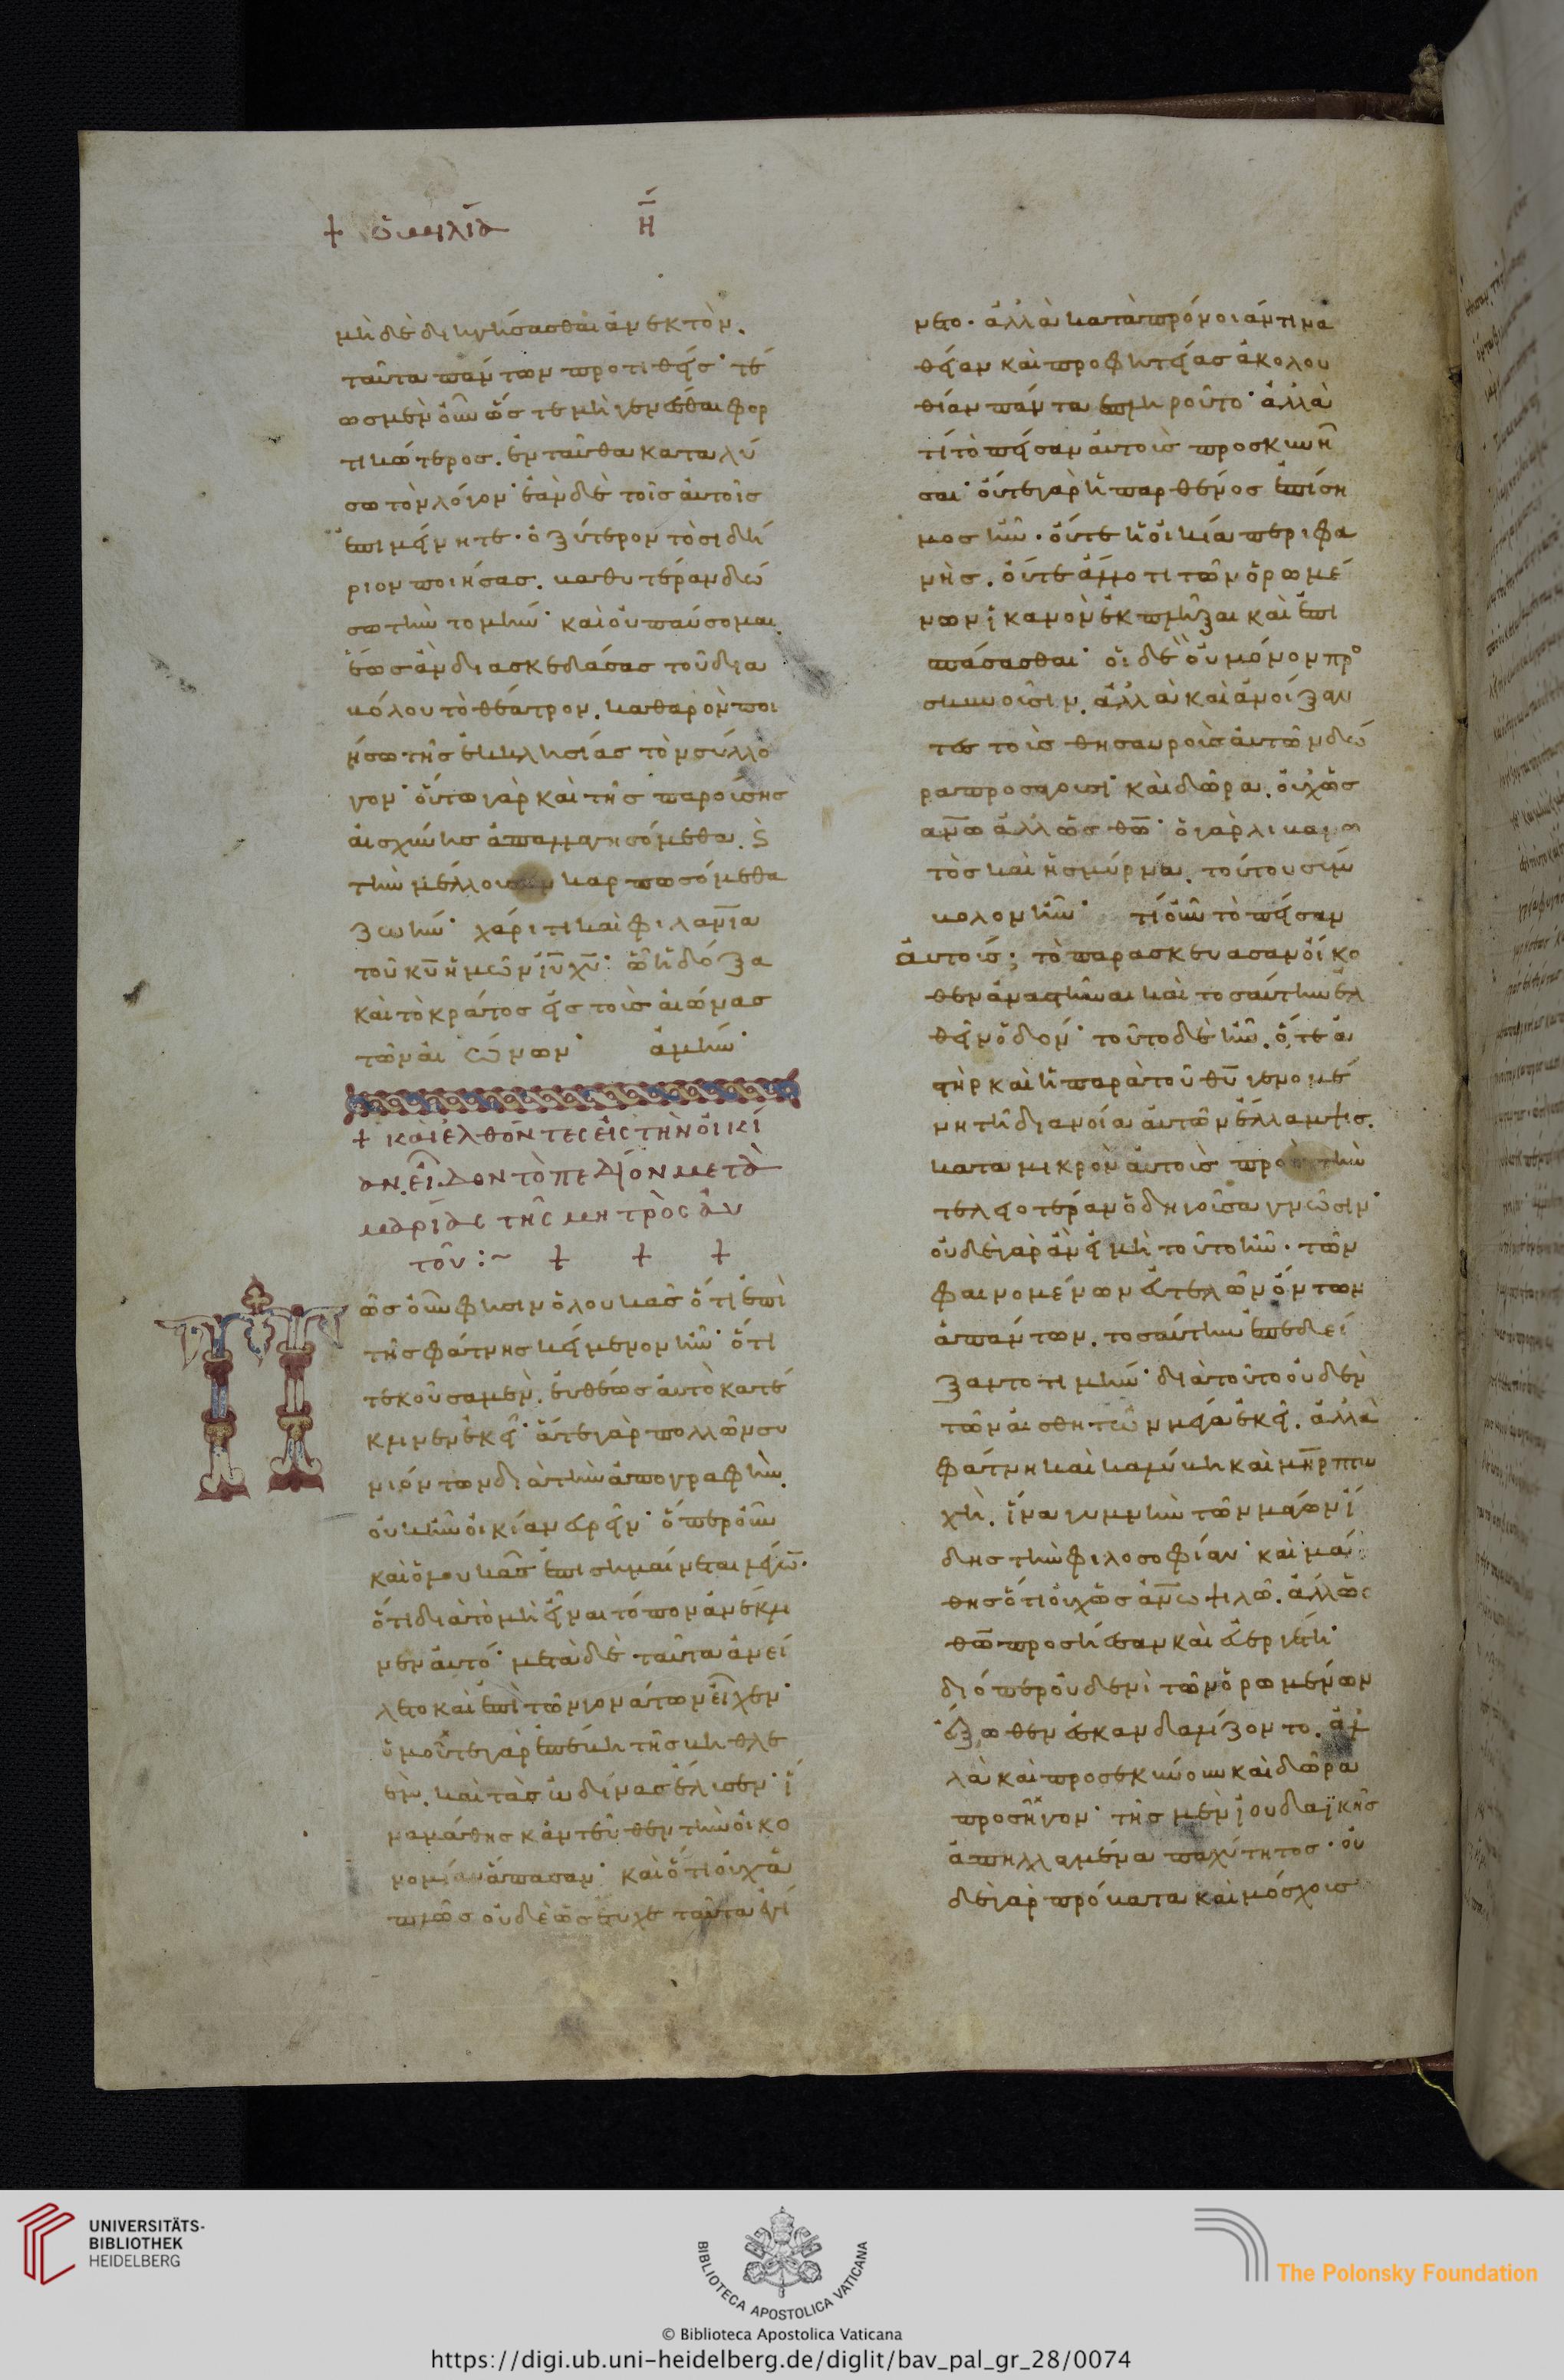 + ὁμιλία Η̅
μὴ δὲ διηγήσασθαι ἀνεκτὸν.
ταῦτα πάντων προτιθείς· τέ
ως μὲν οὖν ὥστε μὴ γενέσθαι φορ
τικώτερος. ἐνταῦθα καταλύ
σω τὸν λόγον· ἐὰν δὲ τοῖς αὐτοῖς
ἐπιμένητε. ὀξύτερον τὸ σιδή
ριον ποιήσας. βαθυτέραν δώ
σω τὴν τομήν· καὶ οὐ παύσομαι
ἕως ἂν διασκεδάσας τοῦ δια
βόλου τὸ θέατρον. καθαρὸν ποι
ήσω τῆς ἐκκλησίας τὸν σύλλο
γον· οὕτω γὰρ καὶ τῆς παρούσης
αἰσχύνης ἀπαλλαγησόμεθα. ϗ
τὴν μέλλουσαν καρπωσόμεθα
ζωήν· χάριτι καὶ φιλανία
τοῦ κυ ἡμῶν ιυ χυ· ὧ ἡ δόξα
καὶ τὸ κράτος εἰς τοὺς αἰῶνας
τῶν αἰώνων· ἀμήν·
+ καὶ ἐλθόντες εἰς τὴν οἰκί
αν. εἶδον τὸ πεδίον μετὰ
μαρίας τῆς μητρὸς αὐ
τοῦ :~ + + +
Πῶς οὖν φησιν ὁ λουκᾶς ὅτι ἐπὶ
τῆς φάτνης κείμενον ἦν· ὅτι
τεκοῦσα μὲν. εὐθέως αὐτὸ κατέ
κλινεν ἐκεῖ· ἅτε γὰρ πολλῶν συ
νιόντων διὰ τὴν ἀπογραφὴν.
οὐκ ἦν οἰκίαν εὑρεῖν· ὅπερ οὖν
καὶ ὁ λουκᾶς ἐπισημαίνεται λέγων.
ὅτι διὰ τὸ μὴ εἶναι τόπον ἀνέκλι
νεν αὐτό· μετὰ δὲ ταῦτα ἀνεί
λετο καὶ ἐπὶ τῶν γονάτων εἶχεν·
ὁμοῦ τε γὰρ ἐπέβη τῆς βηθλε
ὲμ. καὶ τὰς ὠδίνας ἔλυσεν· ἵ
να μάθης κἀντεῦθεν τὴν οἰκο
νομίαν ἅπασαν· καὶ ὅτι οὐχ ἁ
πλῶς οὐδὲ ὡς ἔτυχε ταῦτα ἐγί
νετο. ἀλλὰ κατὰ πρόνοιάν τινα
θείαν καὶ προφητείας ἀκολου
θίαν πάντα ἐπληροῦτο· ἀλλὰ
τί τὸ πεῖσαν αὐτοὺς προσκυνῆ
σαι· οὔτε γὰρ ἡ παρθένος ἐπίση
μος ἦν. οὔτε ἡ οἰκία περιφα
νὴς. οὔτε ἄλλο τι τῶν ὁρωμέ
νων ἱκανὸν ἐκπλῆξαι καὶ ἐπι
σπάσασθαι· οἱ δὲ οὐ μόνον προ
σκυνοῦσιν. ἀλλὰ καὶ ἀνοίξαν
τες τοὺς θησαυροὺς αὐτῶν δῶ
ρα προσάγουσι· καὶ δῶρα. οὐχ ὡς
ανω ἀλλ ὡς θω· ὁ γὰρ λιβανω
τὸς καὶ ἡ σμύρνα. τούτου σύμ
βολον ἦν· τί οὖν τὸ πεῖσαν
αὐτούς; τὸ παρασκευάσαν οἴκο
θεν ἀναστῆναι καὶ τοσαύτην ἐλ
θεῖν ὁδόν· τοῦτο δὲ ἦν. ὅ, τε ἀ
στὴρ καὶ ἡ παρὰ τοῦ θυ γενομέ
νη τῆ διανοία αὐτῶν ἔλλαμψις.
κατὰ μικρὸν αὐτοὺς πρὸς τὴν
τελειοτέραν ὁδηγοῦσα γνῶσιν·
οὐδὲ γὰρ ἂν εἰ μὴ τοῦτο ἦν. τῶν
φαινομένων εὐτελῶν ὄντων
ἁπάντων. τοσαύτην ἐπεδεί
ξαντο τιμήν· διὰ τοῦτο οὐδὲν
τῶν αἰσθητῶν μέγα ἐκεῖ. ἀλλὰ
φάτνη καὶ καλύβη καὶ μηρ πτω
χὴ. ἵνα γυμνὴν τῶν μάγων ἴ
δης τὴν φιλοσοφίαν· καὶ μά
θης ὅτι οὐχ ὡς ανω ψιλῶ. ἀλλ ὡς
θω προσήεσαν καὶ εὐεργέτη·
διόπερ οὐδενὶ τῶν ὁρωμένων
ἔξωθεν ἐσκανδαλίζοντο. ἀλ
λὰ καὶ προσεκύνουν καὶ δῶρα
προσῆγον· τῆς μὲν ἰουδαϊκῆς
ἀπηλλαγμένα παχύτητος. οὐ
δὲ γὰρ πρόβατα καὶ μόσχους
UNIVERSITÄTS-
BIBLIOTHEK
HEIDELBERG
BIBLIOTECA APOSTOLICA VATICANA
The Polonsky Foundation
© Biblioteca Apostolica Vaticana
https://digi.ub.uni-heidelberg.de/diglit/bav_pal_gr_28/0074